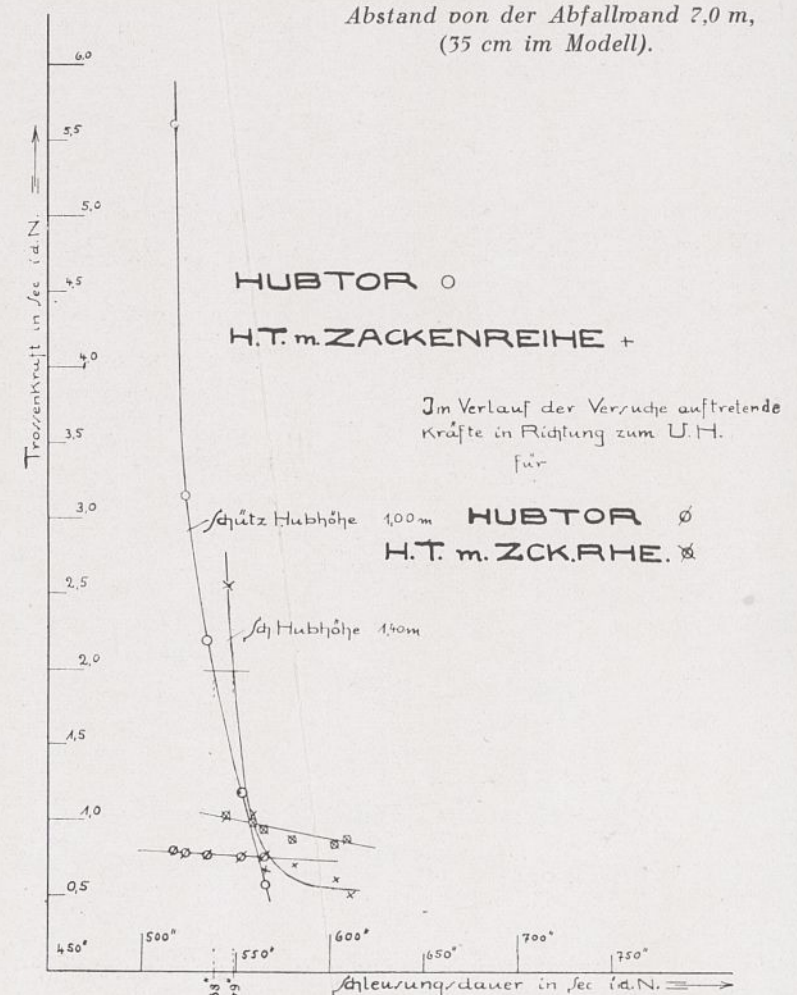 Abstand von der Abfallwand 7,0 m,
(35 cm im Modell).
Trossenkraft in sec i.d.N.
6,0
5,5
5,0
4,5
4,0
3,5
3,0
2,5
2,0
1,5
1,0
0,5
HUBTOR
H.T. m. ZACKENREIHE +
Im Verlauf der Versuche auftretende
Kräfte in Richtung zum U.H.
für
HUBTOR ø
H.T. m. ZCK.RHE.
Schütz Hubhöhe 1,00 m
Sch Hubhöhe 1,40 m
450" 500" 550" 600" 650" 700" 750"
Schleusungsdauer in sec i.d.N.